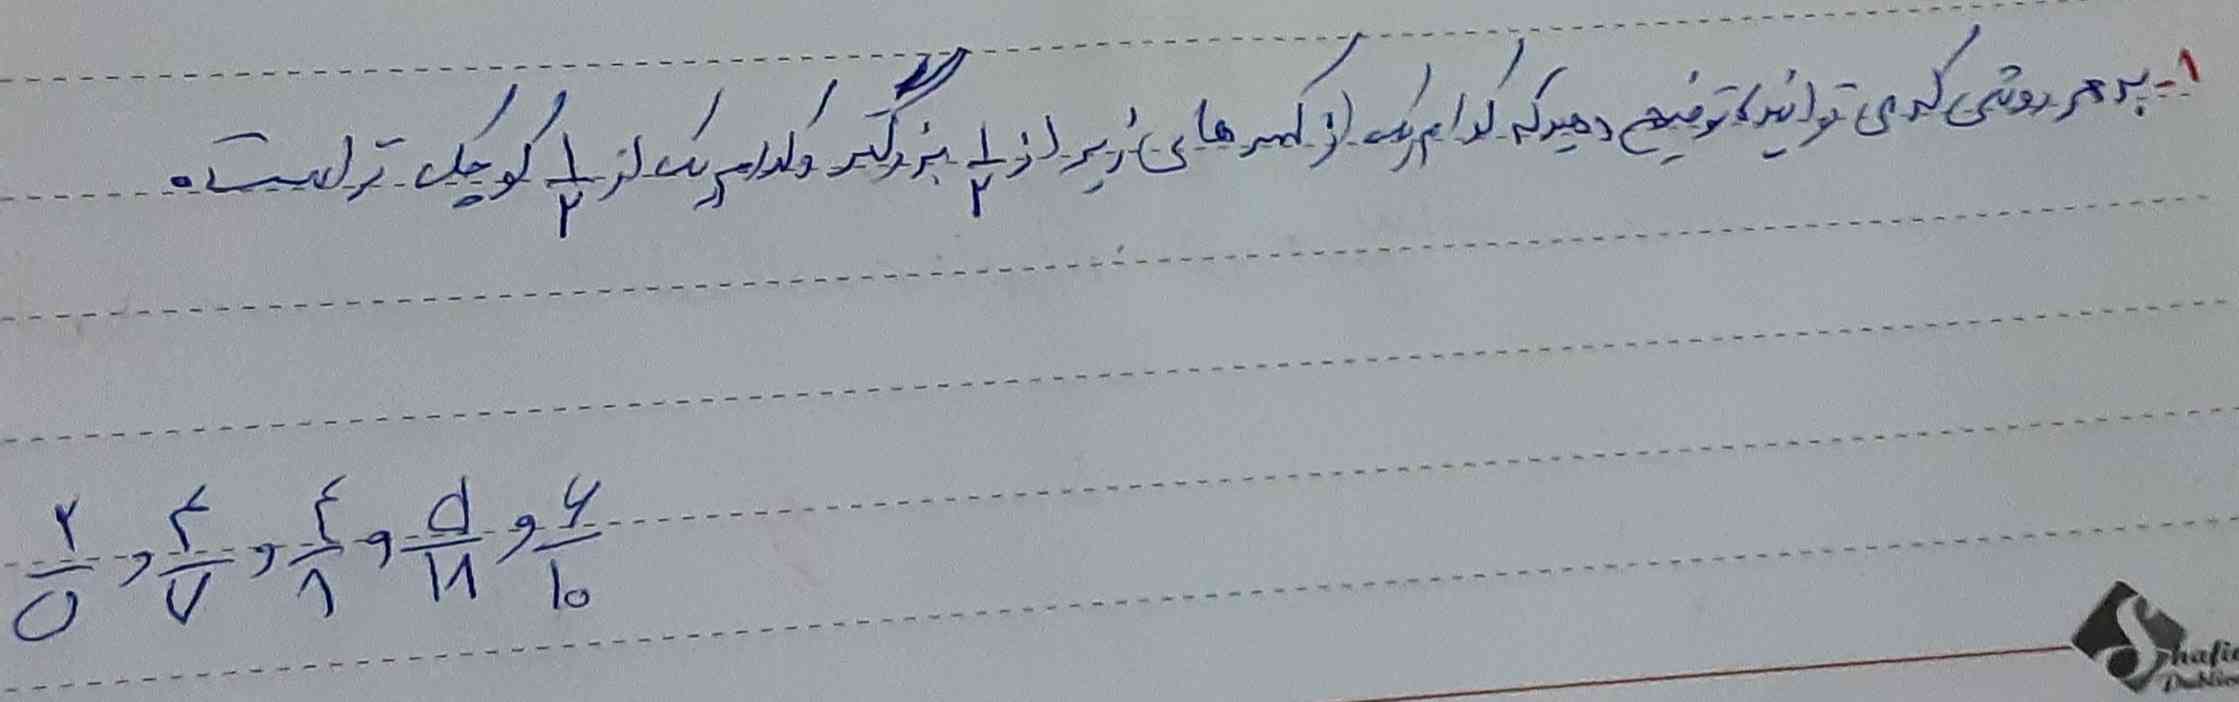 ۱- به هر روشی که می توانید، توضیح دهید که کدام یک از کسر های زیر از ۱/۲ بزرگتر و کدام یک از ۱/۲ کوچک تر است.
۲/۵ , ۴/۷ , ۴/۸ , ۵/۱۸ , ۶/۱۰
Shafie